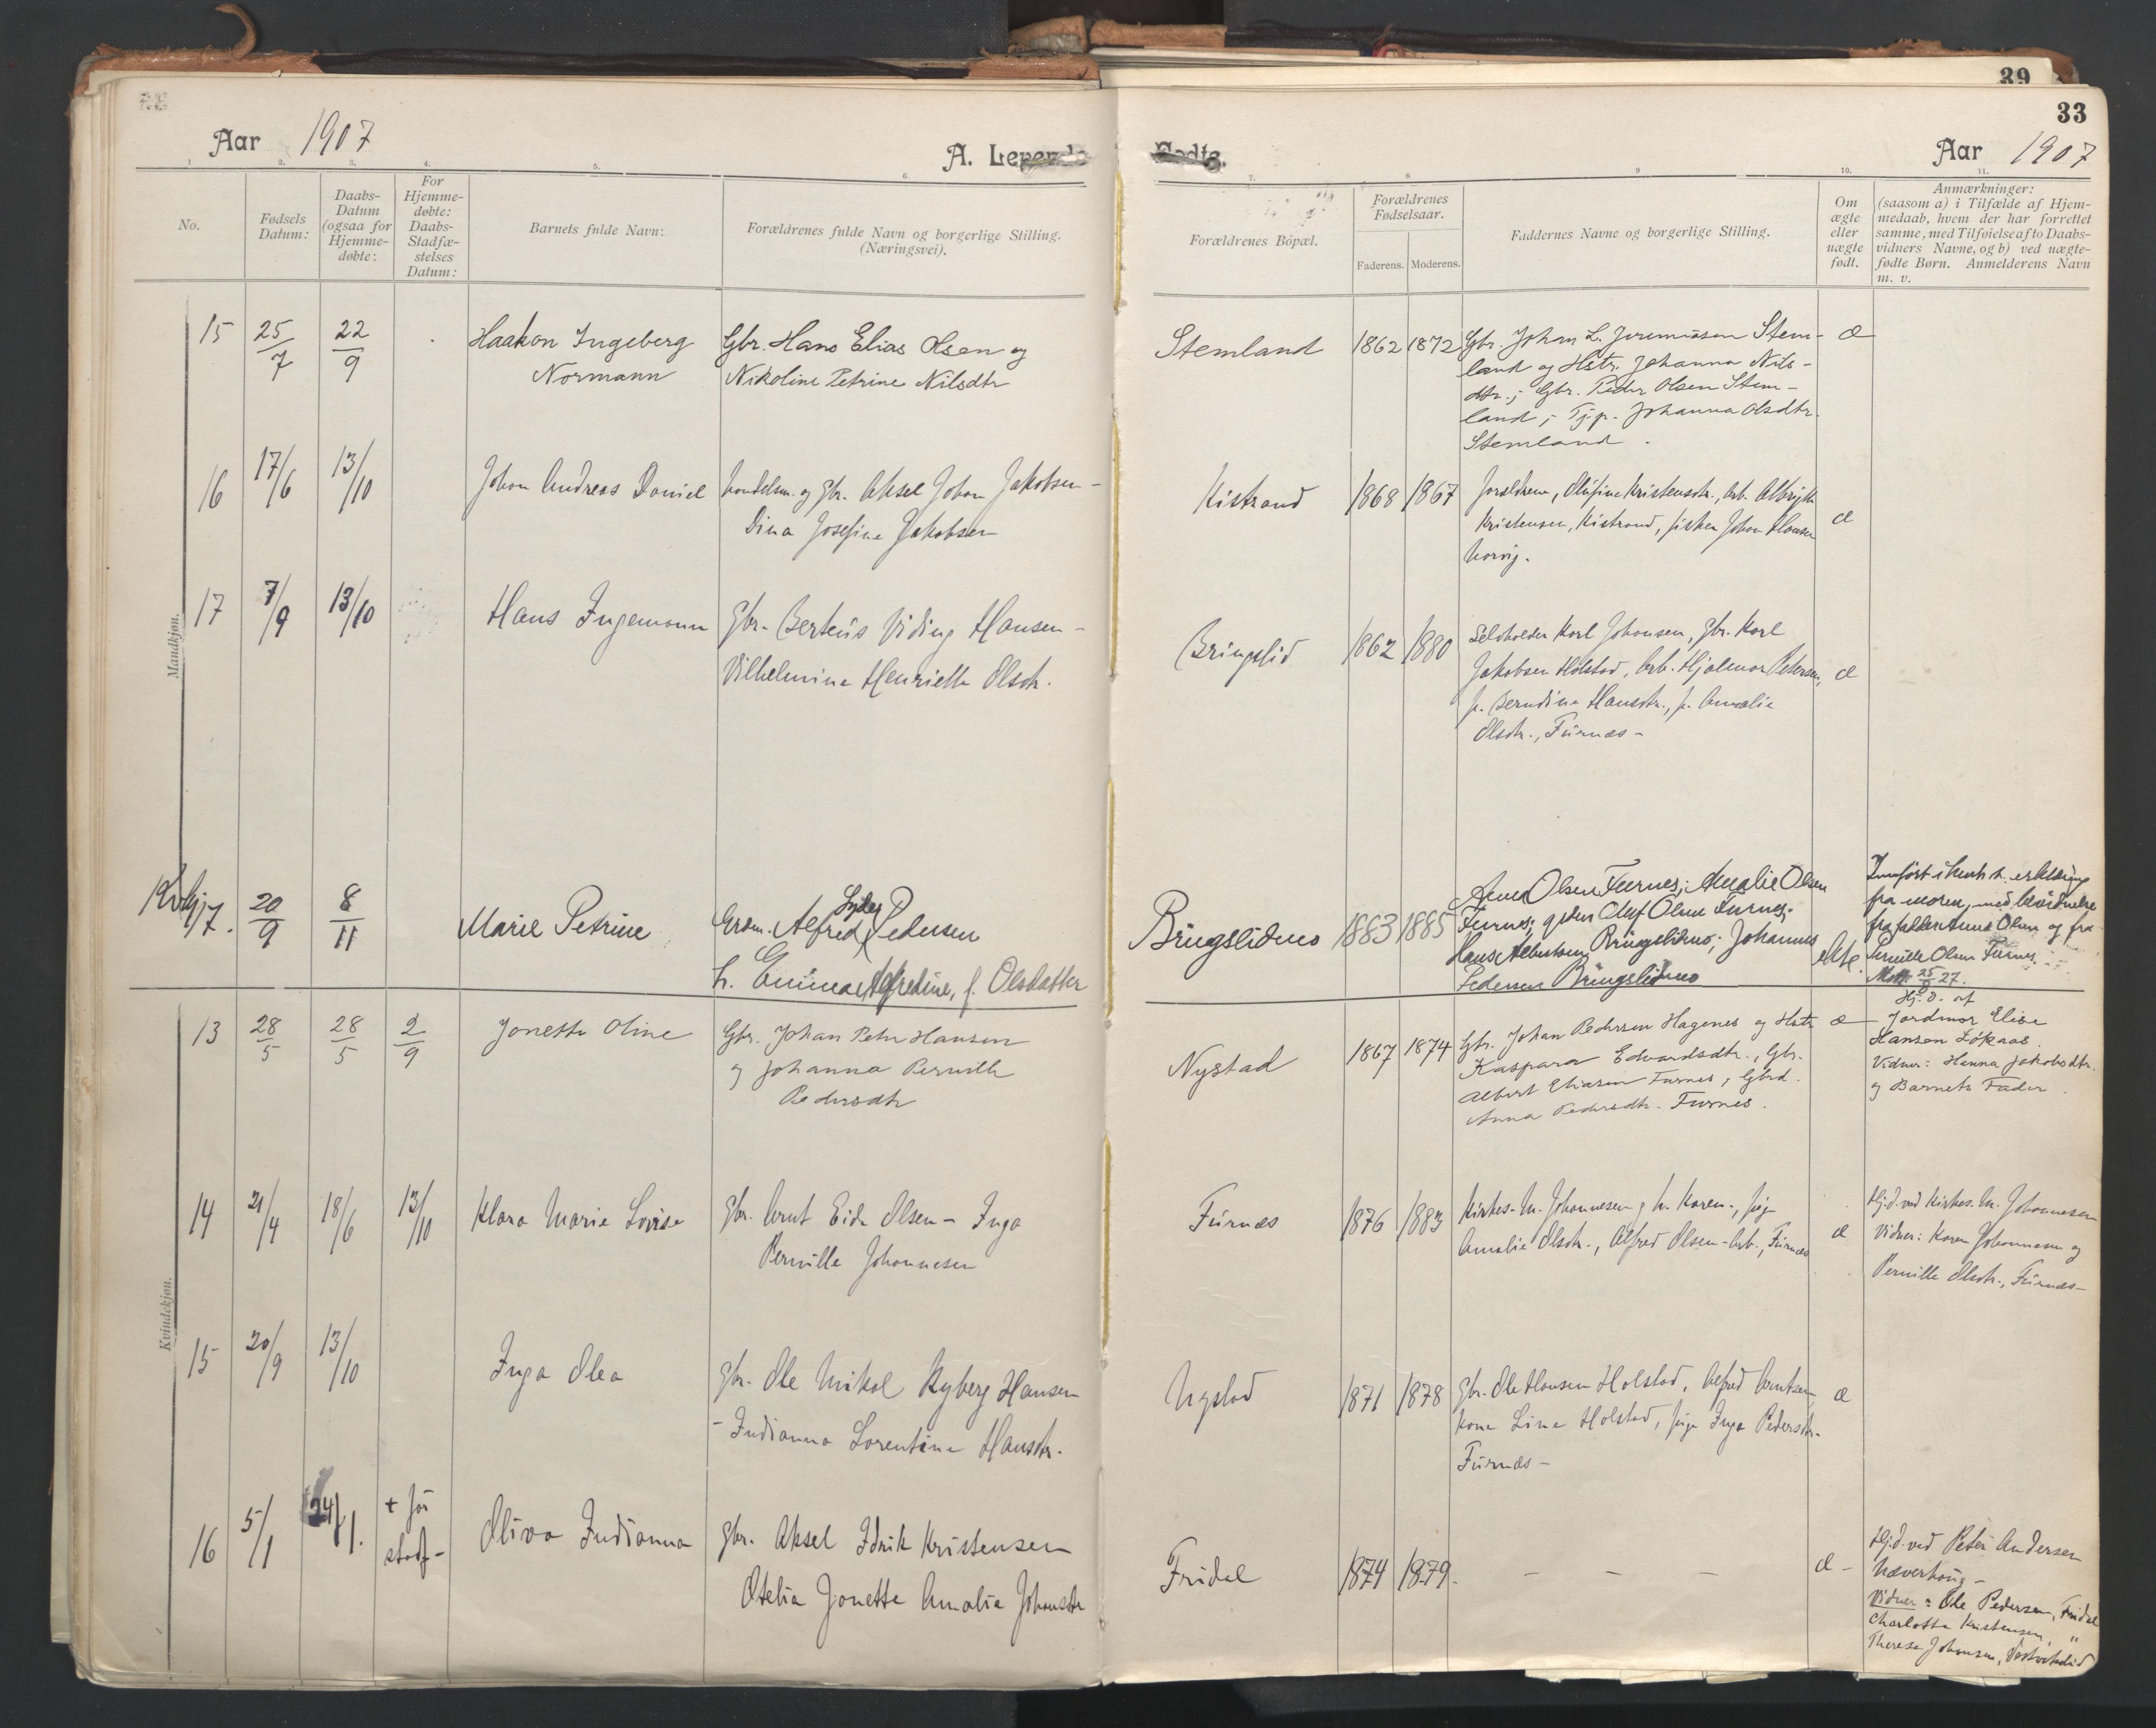 39
33
Aar 1907
A. Levende
Fødte.
Aar 1907
1. 2. 3. 4. 5. 6. 7. 8 9 10. 11.
No.
Fødsels Datum:
Daabs-
Datum
(ogsaa for
Hjemme-
døbte:
For
Hjemme-
døbte:
Daabs-
Stadfæ-
stelses
Datum:
Barnets fulde Navn:
Forældrenes fulde Navn og borgerlige Stilling.
(Næringsvei).
Forældrenes Böpæl.
Forældrenes
Fødselsaar.
Faderens. Moderens.
Faddernes Navne og borgerlige Stilling.
Om
ægte
eller
uægte
født.
Anmærkninger:
(saasom a) i Tilfælde af Hjem-
medaab, hvem der har forrettet
samme, med Tilføielse af to Daabs-
vidners Navne, og b) ved uægte-
fødte Børn. Anmelderens Navn
m. v.
Mandkjøn.
15 25/7 22/9 Haakon Ingeberg
Normann
Gbr. Hans Elias Olsen og
Nikoline Petrine Nilsdtr
Stemland 1862 1872
Gbr. Johan L. Jeremiasen Stem-
land og Hstr. Johanna Nils-
dtr.; Gbr. Peder Olsen Stem-
land; Tj.p. Johanna Olsdtr.
Stemland.
æ
16 17/6 13/10 Johan Andreas Daniel
Handelsm. og Gbr. Aksel Johan Jakobsen -
Dina Josefine Jakobsen
Kistrand 1868 1867
Forældrene, Olufine Kristensdtr., Arb. Albrigt
Kristensen, Kistrand, fisker Johan Hansen
Norvig.
æ
17 7/9 13/10 Hans Ingemann
Gbr. Berteüs Viding Hansen -
Vilhelmine Henriette Olsdtr.
Bringslid 1862 1880
Selvholden Karl Johansen, Gbr. Karl
Jakobsen Holstad, Arb. Hjalmar Pedersen,
p. Berndine Hansdtr., p. Amalie
Olsdtr., Fürnæs -
æ
Kvkj 7. 20/9 8/11 Marie Petrine
Grdm. Alfred Lyder Pedersen
h. Emma Alfredine, f. Olsdatter
Bringslidmo 1883 1885
Anna Olsen Furnes; Amalie Olsen
Furnes; gdbr Oluf Olsen Furnes;
Hans Albertsen Bringslidmo; Johannes
Pedersen Bringslidmo
ekte.
Innført i henh. t. erklæring
fra moren, med bevidnelse
fra fadder Anna Olsen og fra
Pernille Olsen Furnes.
Kvindekjøn.
13 28/5 28/5 2/9 Jonette Oline
Gbr. Johan Peter Hansen
og Johanna Pernille
Pedersdtr
Nystad 1867 1874
Gbr. Johan Pedersen Hagenes og Hstr
Kaspara Edvardsdtr., Gbr.
Albert Eliasen Furnes, Gbrd.
Anna Pedersdtr. Furnes.
æ
Hj.d. af
Jordmor Elise
Hansen Løkaas.
Vidner: Hanna Jakobsdtr.
og Barnets Fader.
14 21/4 18/6 13/10 Klara Marie Lovise
Gbr. Arnt Eide Olsen - Inga
Pernille Johannesen
Fürnæs 1876 1883
Kirkes. M. Johannesen og h. Karen., pige
Amalie Olsdtr., Alfred Olsen - Arb., Fürnæs
æ
Hj.d. ved Kirkes. M. Johannesen
Vidner: Karen Johannesen og
Pernille Olsdtr., Fürnæs -
15 20/9 13/10 Inga Olea
Gbr. Ole Mikal Ryberg Hansen
- Indianna Lorentine Hansdtr.
Nystad 1871 1878
Gbr. Ole Hansen Holstad, Alfred Arntsen,
Kone Line Holstad, pige Inga Pedersdtr.
Fürnæs -
æ
16 5/1 24/1. + før
stadf -
Oliva Indianna
Gbr. Aksel Edrik Kristensen
Otelia Jonette Amalia Johansdtr
Fridal 1874 1879.
- - -
æ -
Hj.d. ved Peter Andersen
Næverhaug -
Vidner: Ole Pedersen, Fridal
Charlotte Kristensen, "
Therese Johansen, Vestvatnlid